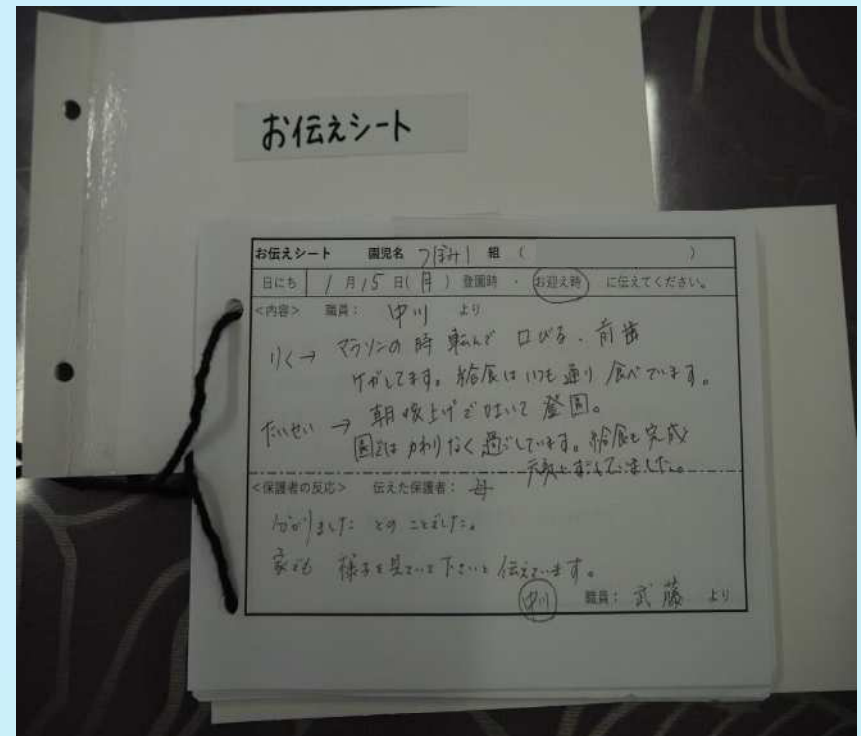 お伝えシート
お伝えシート 園児名 つぼみ1 組 ( )
日にち 1月15日(月) 登園時 ・ お迎え時 に伝えてください。
<内容> 職員: 中川 より
りく→ マラソンの時 転んで 口びる、前歯
けがしてます。給食はいつも通り 食べています。
たいせい → 朝 咳上げではいて 登園。
園ではかわりなく過ごしています。給食も完食
元気に
<保護者の反応> 伝えた保護者: 母
分かりました とのことでした。
家でも 様子を見ていて下さいと 伝えています。
中川 職員: 武藤 より